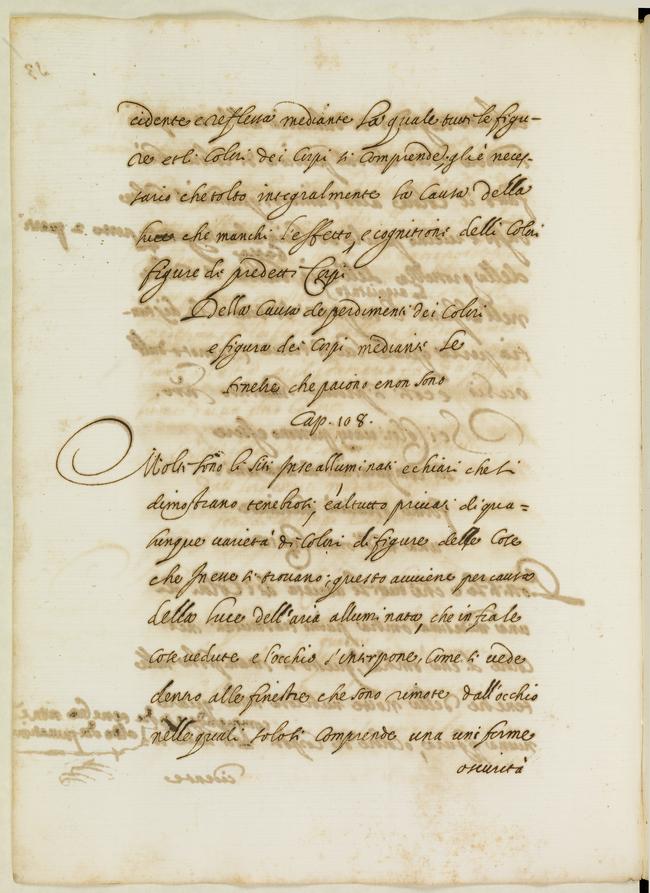 cidente e reflessa mediante La quale tutti le figu-
re et li Colori dei Corpi si Comprende, gli è neces-
sario che tolto integralmente la Causa della
luce che manchi l'effetto, e cognitione delli Colori
figure de predetti Corpi
Della Causa de perdimenti dei Colori
e figura dei Corpi mediante Le
tinebre che paiono e non sono
Cap. 108.
Molti sono li siti In se alluminati e chiari che si
dimostrano tenebrosi, e al tutto privati di qua=
lunque varietà di Colori di figure delle Cose
che In esse si trovano; questo avviene per causa
della luce dell'aria alluminata, che infra le
Cose vedute e l'occhio s'interpone, Come si vede
dentro alle finestre che sono rimote dall'occhio
nelle quali solo si Comprende una uniforme
oscurità